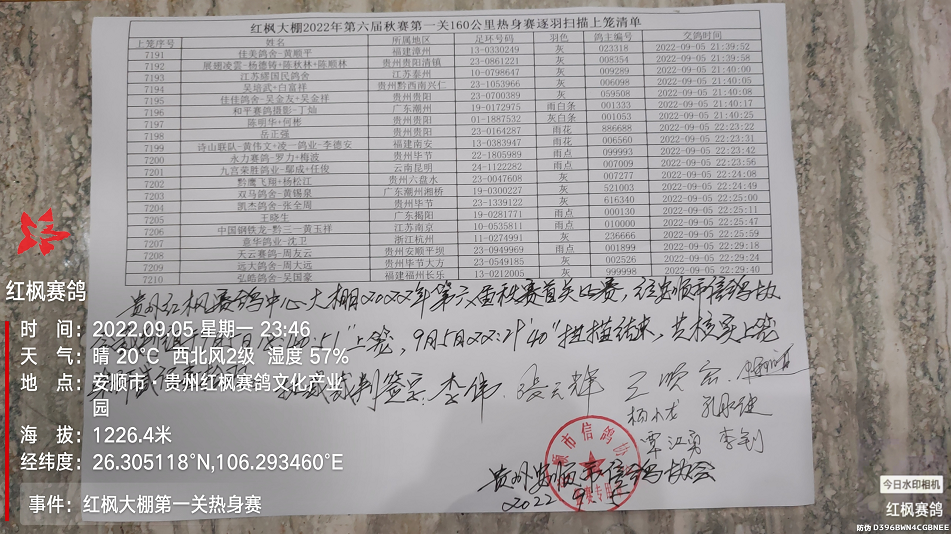 红枫大棚2022年第六届秋赛第一关160公里热身赛逐羽扫描上笼清单
上笼序号 姓名 所属地区 足环号码 羽色 鸽主编号 交鸽时间
7191 佳美鸽舍-黄顺平 福建漳州 13-0330249 灰 023318 2022-09-05 21:39:52
7192 展翅凌雲-杨德铸+陈秋林+陈顺林 贵州贵阳清镇 23-0861221 灰 008354 2022-09-05 21:39:58
7193 江苏耀国民鸽舍 江苏泰州 10-0798647 灰 009289 2022-09-05 21:40:00
7194 吴培武+白富祥 贵州黔西南兴仁 23-1053966 灰 006098 2022-09-05 21:40:05
7195 佳佳鸽舍-吴金友+吴金祥 贵州贵阳 23-0700389 灰 059508 2022-09-05 21:40:08
7196 和平赛鸽摄影-丁灿 广东潮州 19-0172975 雨白条 001333 2022-09-05 21:40:17
7197 陈明华+何彬 贵州贵阳 01-1887532 灰白条 001053 2022-09-05 21:40:25
7198 岳正强 贵州贵阳 23-0164287 雨花 886688 2022-09-05 22:23:22
7199 诗山联队-黄伟文+凌一鸽业-李德安 福建南安 13-0383947 雨花 006560 2022-09-05 22:23:31
7200 永力赛鸽-罗力+梅波 贵州毕节 22-1805989 雨点 099993 2022-09-05 22:23:42
7201 九宫荣胜鸽业-鄢成+任俊 云南昆明 24-1122282 雨点 007009 2022-09-05 22:23:56
7202 黔鹰飞翔+杨松江 贵州六盘水 23-0047608 灰 007277 2022-09-05 22:24:08
7203 双马鸽舍-黄锡泉 广东潮州湘桥 19-0300227 灰 521003 2022-09-05 22:24:49
7204 凯杰鸽舍-张全周 贵州毕节 23-1339122 灰 616340 2022-09-05 22:25:00
7205 王晓生 广东揭阳 19-0281771 雨点 000130 2022-09-05 22:25:11
7206 中国钢铁龙-黔三一黄玉祥 江苏南京 10-0535811 雨点 010000 2022-09-05 22:25:47
7207 童华鸽业-沈卫 浙江杭州 11-0274991 灰 236666 2022-09-05 22:25:59
7208 天云赛鸽-周友云 贵州安顺平坝 23-0949969 雨点 001899 2022-09-05 22:29:18
7209 远大鸽舍-周大远 贵州毕节大方 23-0549185 灰 002526 2022-09-05 22:29:24
7210 弘皓鸽舍-吴国豪 福建福州长乐 13-0212005 灰 999998 2022-09-05 22:29:40
贵州红枫赛鸽中心大棚2022年第六届秋赛首关比赛，经安顺市信鸽协
上笼，9月5日22:29'40"扫描结束，共核实上笼
裁判签字：李伟 张云辉 王顺会
杨小龙 孔职健
覃江勇 李钊
贵州安顺市信鸽协会
2022 9 5
红枫赛鸽
时 间：2022.09.05 星期一 23:46
天 气：晴 20℃ 西北风2级 湿度 57%
地 点：安顺市·贵州红枫赛鸽文化产业园
海 拔：1226.4米
经纬度：26.305118°N,106.293460°E
事件：红枫大棚第一关热身赛
今日水印相机
红枫赛鸽
防伪 D396BWN4CGBNEE